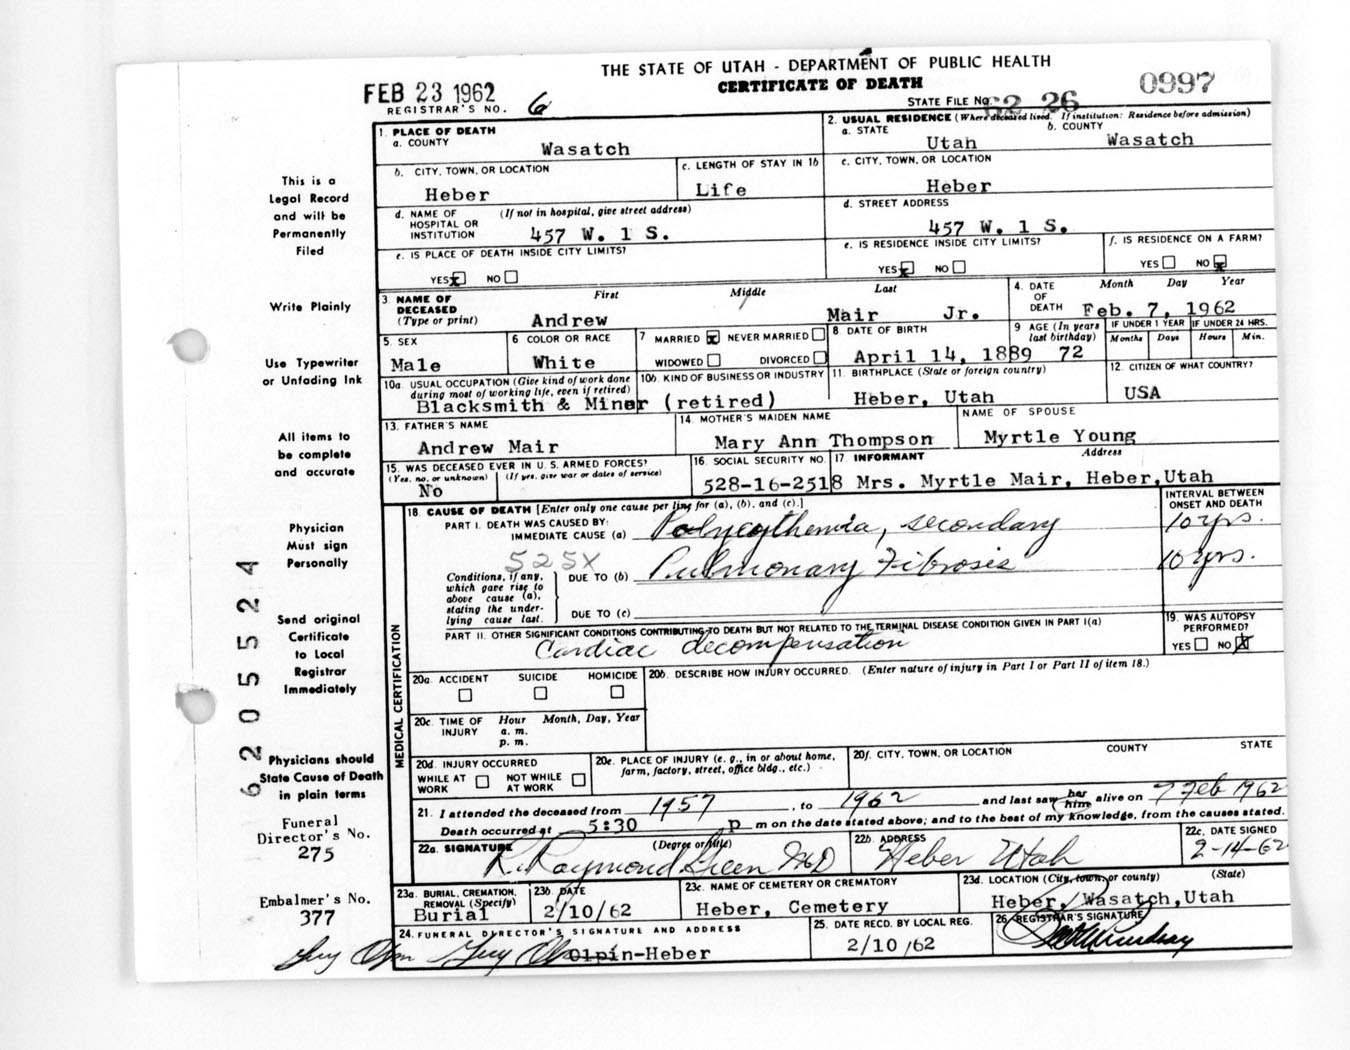 THE STATE OF UTAH - DEPARTMENT OF PUBLIC HEALTH
CERTIFICATE OF DEATH
FEB 23 1962
REGISTRAR'S NO. 6
STATE FILE NO. 62 26
0997
1. PLACE OF DEATH
a. COUNTY
Wasatch
2. USUAL RESIDENCE (Where deceased lived. If institution: Residence before admission)
a. STATE b. COUNTY
Utah Wasatch
b. CITY, TOWN, OR LOCATION
Heber
c. LENGTH OF STAY IN 1b
Life
c. CITY, TOWN, OR LOCATION
Heber
d. NAME OF HOSPITAL OR INSTITUTION (If not in hospital, give street address)
457 W. 1 S.
d. STREET ADDRESS
457 W. 1 S.
e. IS PLACE OF DEATH INSIDE CITY LIMITS?
YES x NO
e. IS RESIDENCE INSIDE CITY LIMITS?
YES x NO
f. IS RESIDENCE ON A FARM?
YES NO x
3. NAME OF DECEASED (Type or print)
First Middle Last
Andrew Mair Jr.
4. DATE OF DEATH Month Day Year
Feb. 7, 1962
5. SEX
Male
6 COLOR OR RACE
White
7 MARRIED x NEVER MARRIED
WIDOWED DIVORCED
8 DATE OF BIRTH
April 14, 1889
9 AGE (In years last birthday)
72
IF UNDER 1 YEAR IF UNDER 24 HRS.
Months Days Hours Min.
10a. USUAL OCCUPATION (Give kind of work done during most of working life, even if retired)
10b. KIND OF BUSINESS OR INDUSTRY
Blacksmith & Miner (retired)
11. BIRTHPLACE (State or foreign country)
Heber, Utah
12. CITIZEN OF WHAT COUNTRY?
USA
13. FATHER'S NAME
Andrew Mair
14. MOTHER'S MAIDEN NAME
Mary Ann Thompson
NAME OF SPOUSE
Myrtle Young
15. WAS DECEASED EVER IN U. S. ARMED FORCES?
(Yes, no, or unknown) (If yes, give war or dates of service)
No
16. SOCIAL SECURITY NO.
528-16-2518
17. INFORMANT Address
Mrs. Myrtle Mair, Heber, Utah
MEDICAL CERTIFICATION
18. CAUSE OF DEATH [Enter only one cause per line for (a), (b), and (c).]
INTERVAL BETWEEN ONSET AND DEATH
PART I. DEATH WAS CAUSED BY:
IMMEDIATE CAUSE (a) Polycythemia, secondary 10 yrs.
525X
Conditions, if any, which gave rise to above cause (a), stating the underlying cause last.
DUE TO (b) Pulmonary Fibrosis 10 yrs.
DUE TO (c)
PART II. OTHER SIGNIFICANT CONDITIONS CONTRIBUTING TO DEATH BUT NOT RELATED TO THE TERMINAL DISEASE CONDITION GIVEN IN PART I(a)
Cardiac decompensation
19. WAS AUTOPSY PERFORMED?
YES NO X
20a. ACCIDENT SUICIDE HOMICIDE
20b. DESCRIBE HOW INJURY OCCURRED. (Enter nature of injury in Part I or Part II of item 18.)
20c. TIME OF INJURY Hour Month, Day, Year
a. m.
p. m.
20d. INJURY OCCURRED
WHILE AT WORK NOT WHILE AT WORK
20e. PLACE OF INJURY (e. g., in or about home, farm, factory, street, office bldg., etc.)
20f. CITY, TOWN, OR LOCATION COUNTY STATE
21. I attended the deceased from 1957, to 1962 and last saw her him alive on 7 Feb 1962
Death occurred at 5:30 p m on the date stated above; and to the best of my knowledge, from the causes stated.
22a. SIGNATURE (Degree or title)
R. Raymond Green MD
22b. ADDRESS
Heber Utah
22c. DATE SIGNED
2-14-62
23a. BURIAL, CREMATION, REMOVAL (Specify)
Burial
23b. DATE
2/10/62
23c. NAME OF CEMETERY OR CREMATORY
Heber, Cemetery
23d. LOCATION (City, town, or county) (State)
Heber, Wasatch, Utah
24. FUNERAL DIRECTOR'S SIGNATURE AND ADDRESS
Guy Olpin Guy Olpin-Heber
25. DATE RECD. BY LOCAL REG.
2/10/62
26 REGISTRAR'S SIGNATURE
This is a
Legal Record
and will be
Permanently
Filed
Write Plainly
Use Typewriter
or Unfading Ink
All items to
be complete
and accurate
Physician
Must sign
Personally
Send original
Certificate
to Local
Registrar
Immediately
Physicians should
State Cause of Death
in plain terms
Funeral
Director's No.
275
Embalmer's No.
377
6205524